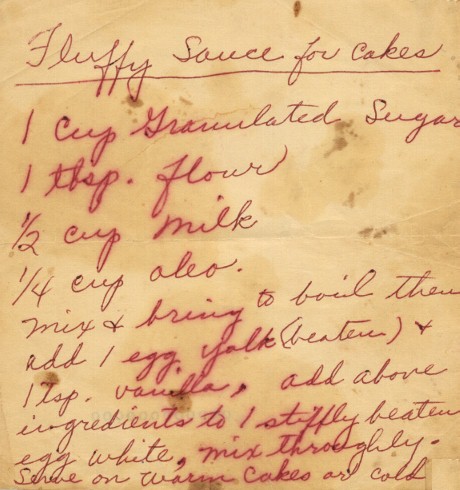 Fluffy Sauce for Cakes
1 cup Granulated Sugar
1 tbsp. flour
1/2 cup milk
1/4 cup oleo.
Mix & bring to boil then
add 1 egg yolk (beaten) &
1 tsp. vanilla, add above
ingredients to 1 stiffly beaten
egg white, mix throughly.
Serve on warm cakes or cold